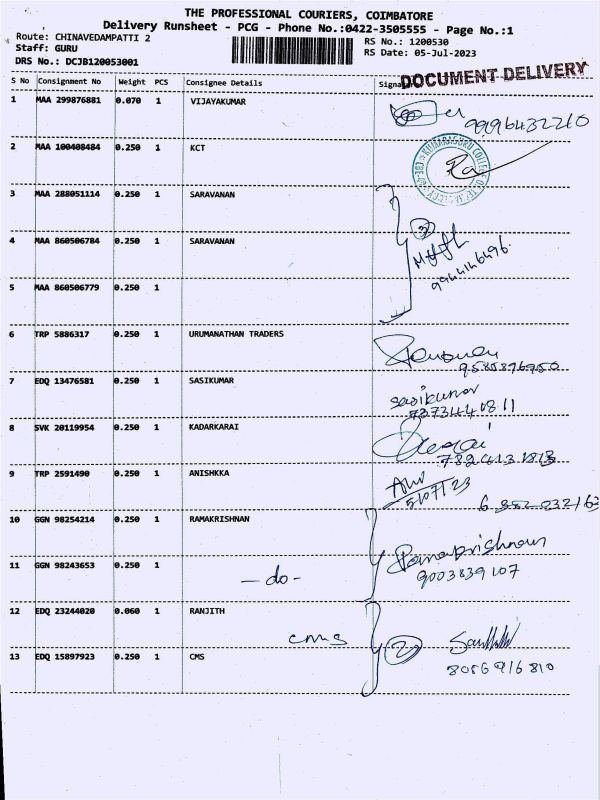 THE PROFESSIONAL COURIERS, COIMBATORE
Delivery Runsheet - PCG - Phone No.:0422-3505555 - Page No.:1
Route: CHINAVEDAMPATTI 2
Staff: GURU
DRS No.: DCJB120053001
RS No.: 1200530
RS Date: 05-Jul-2023
DOCUMENT DELIVERY
S No Consignment No Weight PCS Consignee Details
1 MAA 299876881 0.070 1 VIJAYAKUMAR
9996432210
2 MAA 100408484 0.250 1 KCT
3 MAA 288051114 0.250 1 SARAVANAN
3
4 MAA 860506784 0.250 1 SARAVANAN
9944146496.
5 MAA 860506779 0.250 1
6 TRP 5886317 0.250 1 URUMANATHAN TRADERS
9585876950
7 EDQ 13476581 0.250 1 SASIKUMAR
sasikumar
7373440811
8 SVK 20119954 0.250 1 KADARKARAI
9 TRP 2591490 0.250 1 ANISHKKA
5/07/23
6 352 032163
10 GGN 98254214 0.250 1 RAMAKRISHNAN
Ramakrishnan
9003839107
11 GGN 98243653 0.250 1
- do -
12 EDQ 23244020 0.060 1 RANJITH
cms
2
13 EDQ 15897923 0.250 1 CMS
8056916810